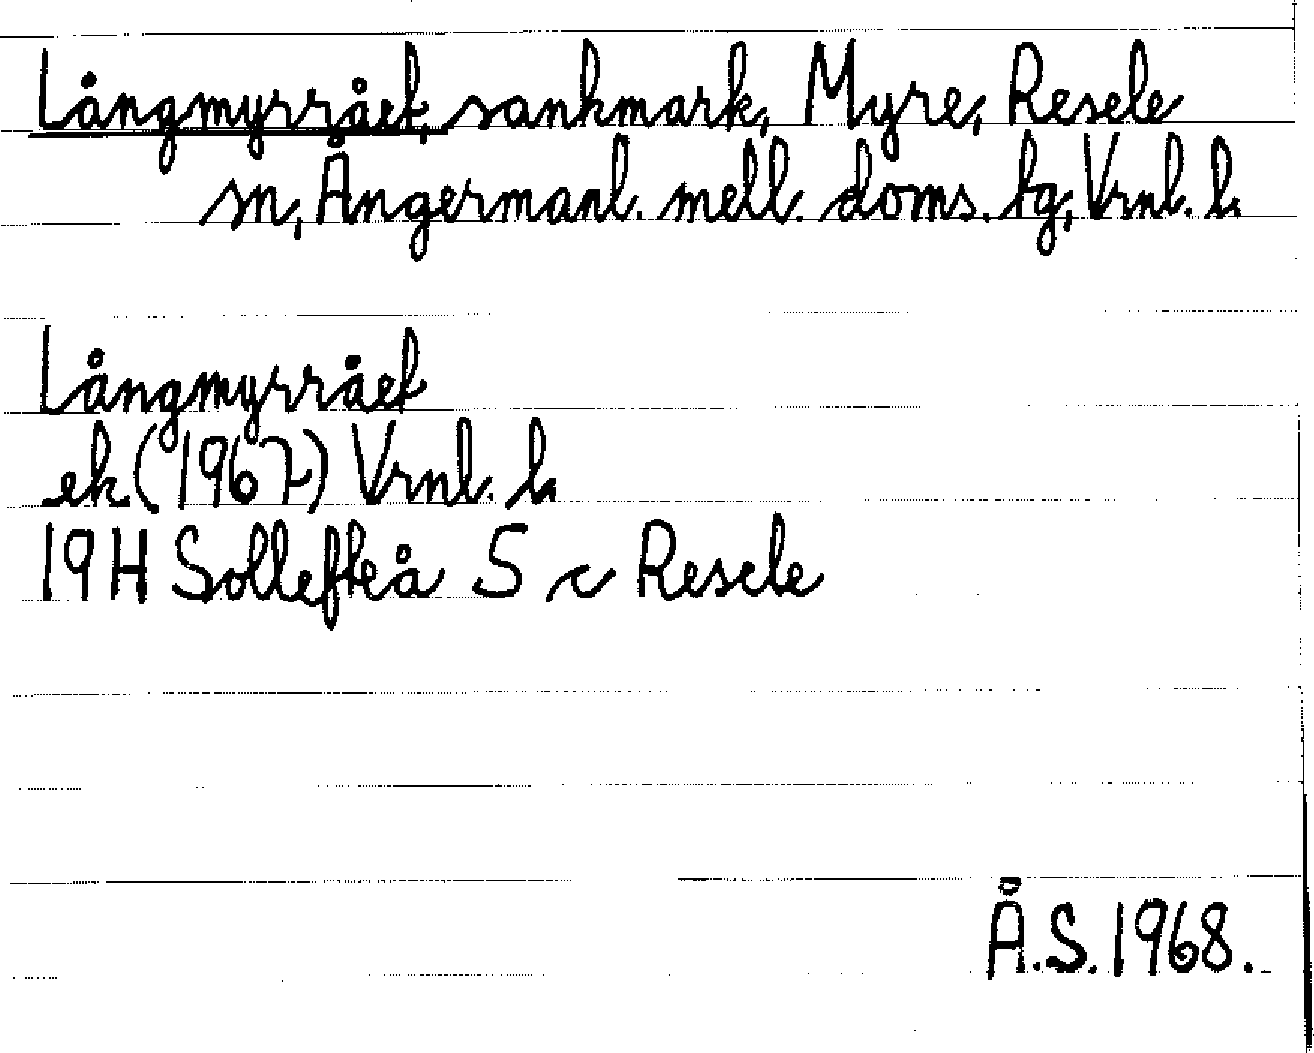 Långmyrrået, sankmark, Myre, Resele
sn, Ångermanl. mell. doms. tg, Vrnl. l.
Långmyrrået
ek (1967) Vrnl. l.
19H Sollefteå S c Resele
Å.S. 1968.